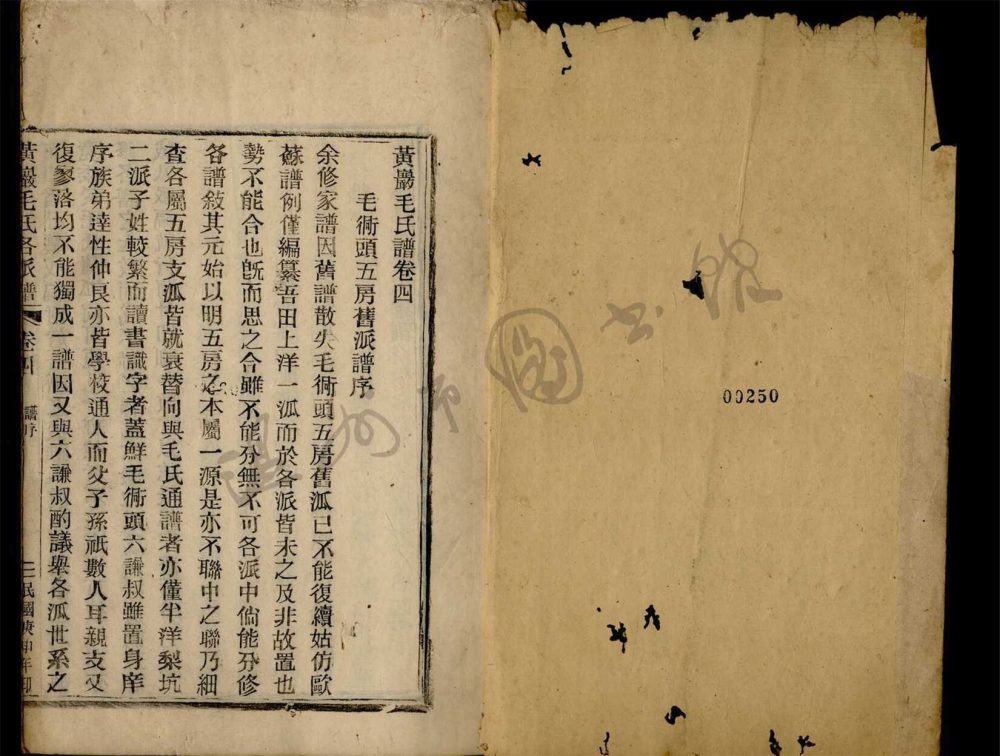 黃巖毛氏譜卷四
毛衕頭五房舊派譜序
余修家譜因舊譜散失毛衕頭五房舊泒已不能復續姑仿歐
蘇譜例僅編纂吾田上洋一泒而於各派皆未之及非故置也
勢不能合也旣而思之合雖不能分無不可各派中倘能分修
各譜敍其元始以明五房之本屬一源是亦不聯中之聯乃細
查各屬五房支泒皆就衰替向與毛氏通譜者亦僅半洋梨坑
二派子姓較繁而讀書識字者蓋鮮毛衕頭六謙叔雖置身庠
序族弟達性仲良亦皆學校通人而父子孫祇數人耳親支又
復寥落均不能獨成一譜因又與六謙叔酌議舉各泒世系之
黃巖毛氏各派譜 卷四 譜序 一 民國庚申年印
00250
臨海市圖書館